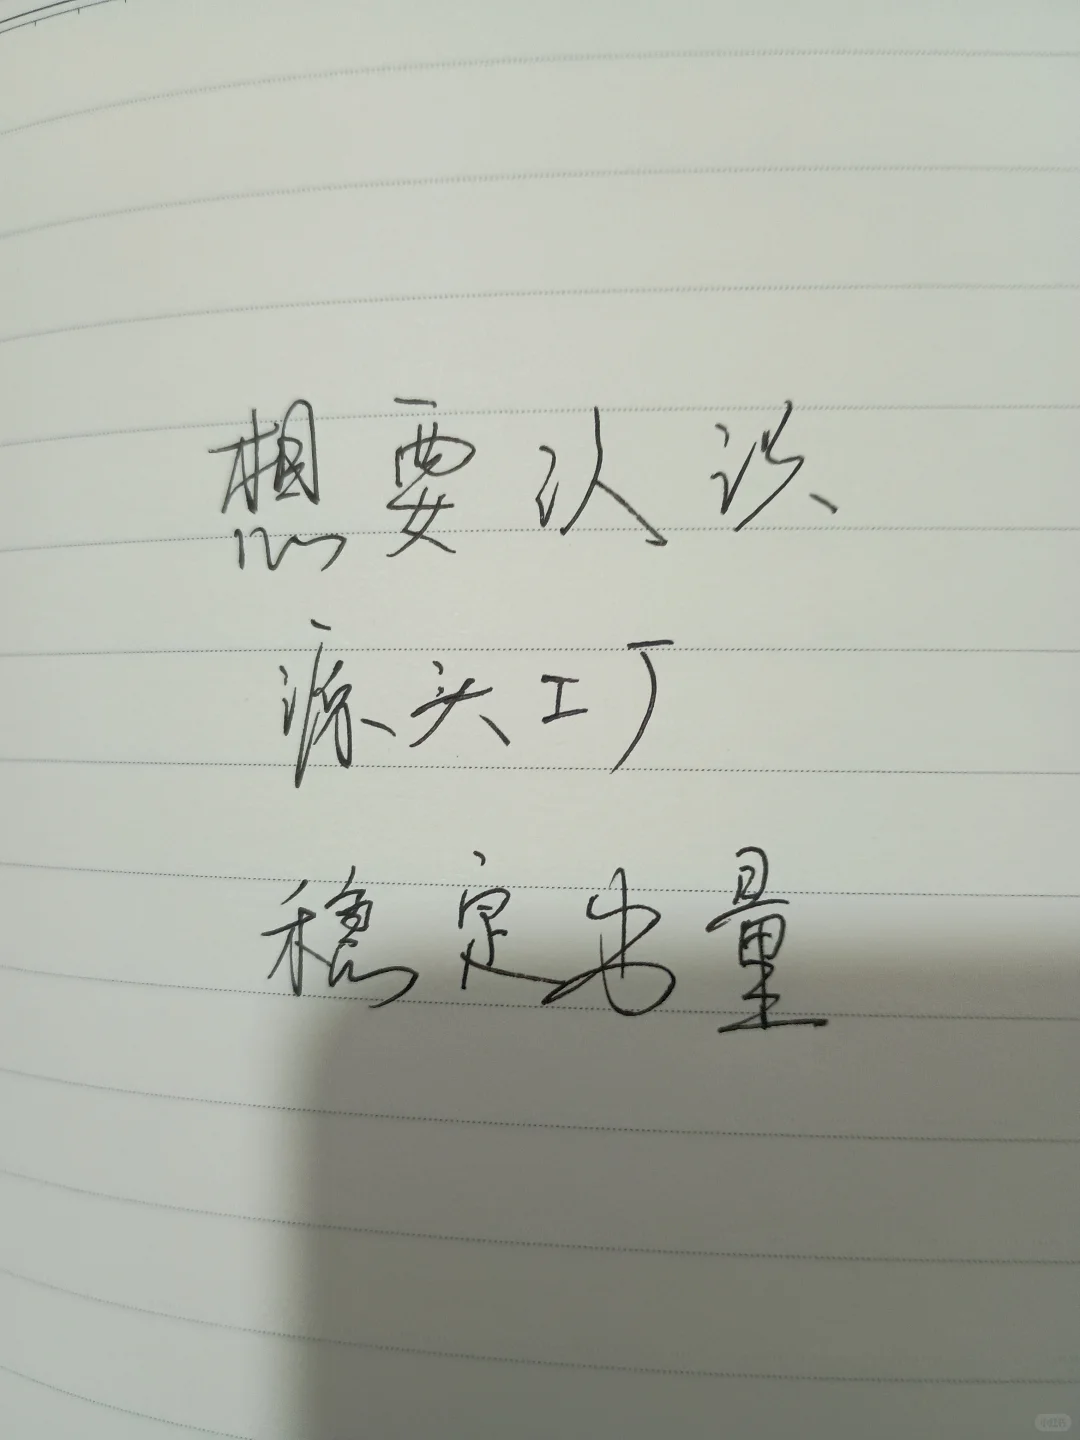 想要认识
源头工厂
稳定出量